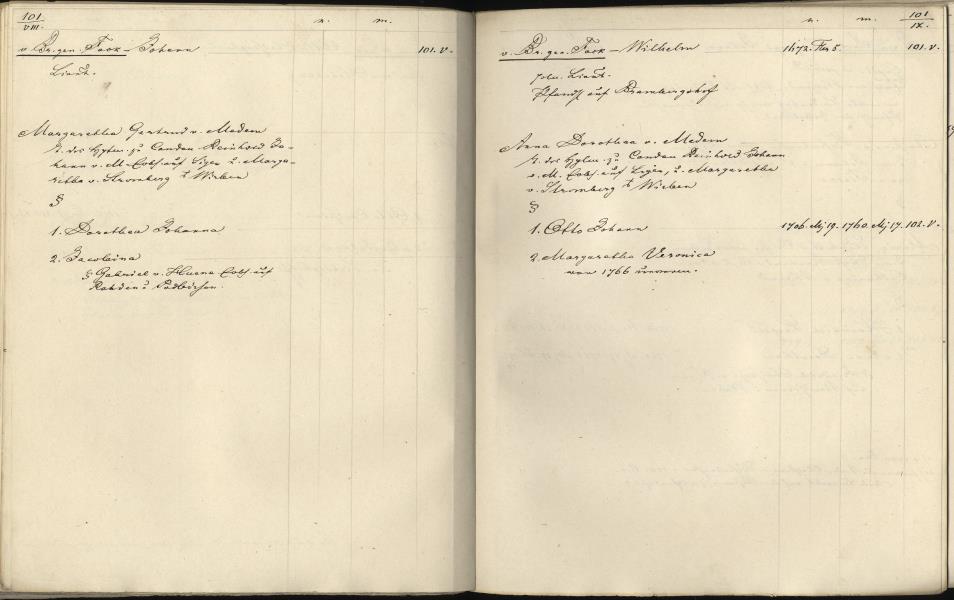 101
VIII.
n. m.
v. Br. gen. Fock – Johann 101. V.
Lieut.
Margaretha Gertrud v. Medem
T. des Hptm. zu Candau Reinhold Jo-
hann v. M. Erbh. auf Iygen u. Marga-
retha v. Stromberg
§
1. Dorothea Johanna
2. Jacobina
§ Gabriel v. Huene Erbh. auf
101
IX.
n. m.
v. Br. gen. Fock – Wilhelm 1672. 101. V.
poln. Lieut.
Pfandh. auf Brambergshof
Anna Dorothea v. Medem
T. des Hptm. zu Candau Reinhold Johann
v. M. Erbh. auf Iygen, u. Margaretha
v. Stromberg
§
1. Otto Johann 1706. Mz 19. 1760. Mz 17. 102. V.
2. Margaretha Veronica
war 1766